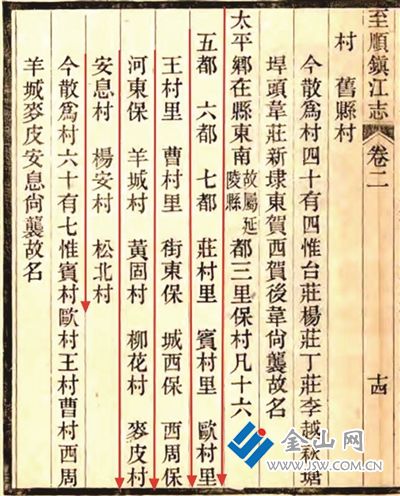 至順鎮江志 卷二 十四
村 舊縣村
今散爲村四十有四惟台莊楊莊丁莊李越秋塘
埤頭韋莊新埭東賀西賀後韋尙襲故名
太平鄉在縣東南故屬延陵縣都三里保村凡十六
五都 六都 七都 莊村里 賓村里 歐村里
王村里 曹村里 街東保 城西保 西周保
河東保 羊城村 黃固村 柳花村 麥皮村
安息村 楊安村 松北村
今散爲村六十有七惟賓村歐村王村曹村西周
羊城麥皮安息尙襲故名
金山网
www.JSW.com.cn